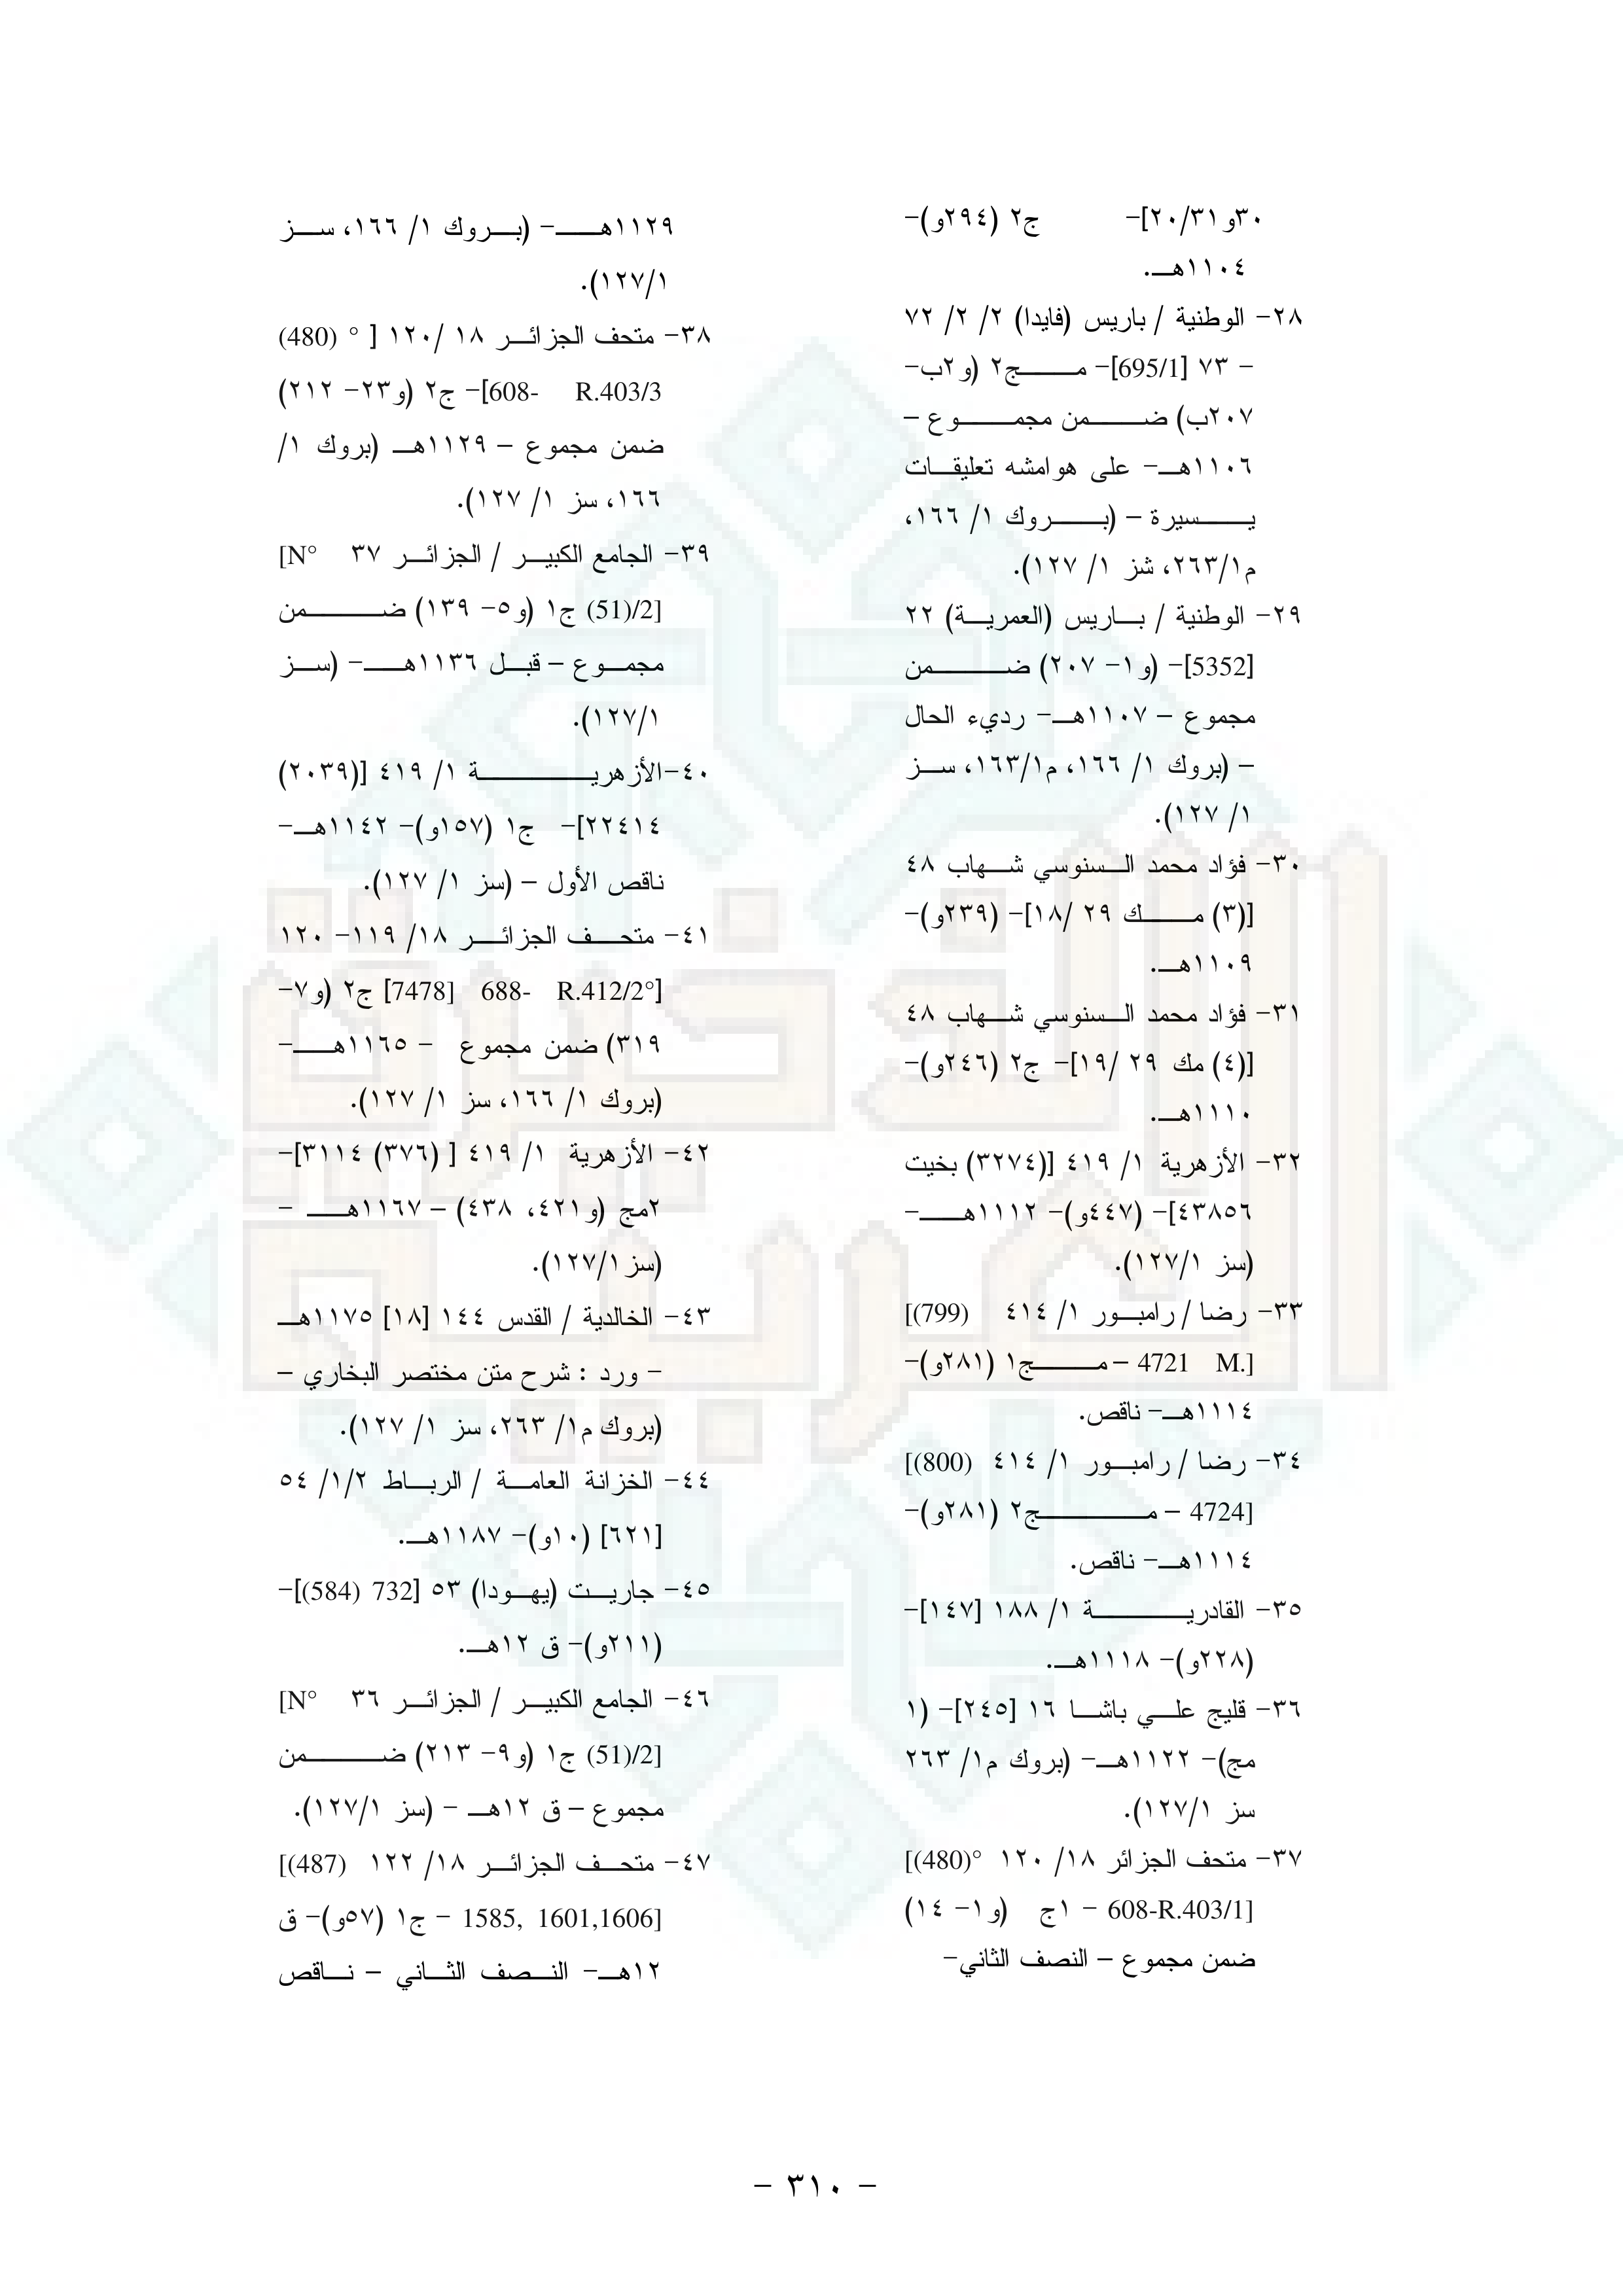 ٣٠و٢٠/٣١]- ج٢ (٢٩٤و)-
١١٠٤هـ.
٢٨- الوطنية / باريس (فايدا) ٢/ ٢/ ٧٢
- ٧٣ [695/1]- مج٢ (و٢ب-
٢٠٧ب) ضمن مجموع –
١١٠٦هـ- على هوامشه تعليقات
يسيرة – (بروك ١/ ١٦٦،
م٢٦٣/١، شز ١/ ١٢٧).
٢٩- الوطنية / باريس (العمرية) ٢٢
[5352]- (و١- ٢٠٧) ضمن
مجموع – ١١٠٧هـ- رديء الحال
– (بروك ١/ ١٦٦، م١٦٣/١، سز
١/ ١٢٧).
٣٠- فؤاد محمد السنوسي شهاب ٤٨
[(٣) مك ٢٩ /١٨]- (٢٣٩و)-
١١٠٩هـ.
٣١- فؤاد محمد السنوسي شهاب ٤٨
[(٤) مك ٢٩ /١٩]- ج٢ (٢٤٦و)-
١١١٠هـ.
٣٢- الأزهرية ١/ ٤١٩ [(٣٢٧٤) بخيت
٤٣٨٥٦]- (٤٤٧و)- ١١١٢هـ-
(سز ١٢٧/١).
٣٣- رضا / رامبور ١/ ٤١٤ [(799)
4721 M.] – مج١ (٢٨١و)-
١١١٤هـ- ناقص.
٣٤- رضا / رامبور ١/ ٤١٤ [(800)
4724] – مج٢ (٢٨١و)-
١١١٤هـ- ناقص.
٣٥- القادرية ١/ ١٨٨ [١٤٧]-
(٢٢٨و)- ١١١٨هـ.
٣٦- قليج علي باشا ١٦ [٢٤٥]- (١
مج)- ١١٢٢هـ- (بروك م١/ ٢٦٣
سز ١٢٧/١).
٣٧- متحف الجزائر ١٨/ ١٢٠ [(480)°
608-R.403/1] - ١ج (و١- ١٤)
ضمن مجموع – النصف الثاني-
١١٢٩هـ- (بروك ١/ ١٦٦، سز
١٢٧/١).
٣٨- متحف الجزائر ١٨ /١٢٠ [ ° (480)
608- R.403/3]- ج٢ (و٢٣- ٢١٢)
ضمن مجموع – ١١٢٩هـ (بروك ١/
١٦٦، سز ١/ ١٢٧).
٣٩- الجامع الكبير / الجزائر ٣٧ [N°
(51)/2] ج١ (و٥- ١٣٩) ضمن
مجموع – قبل ١١٣٦هـ- (سز
١٢٧/١).
٤٠-الأزهرية ١/ ٤١٩ [(٢٠٣٩)
٢٢٤١٤]- ج١ (١٥٧و)- ١١٤٢هـ-
ناقص الأول – (سز ١/ ١٢٧).
٤١- متحف الجزائر ١٨/ ١١٩- ١٢٠
[7478] 688- R.412/2°] ج٢ (و٧-
٣١٩) ضمن مجموع - ١١٦٥هـ-
(بروك ١/ ١٦٦، سز ١/ ١٢٧).
٤٢- الأزهرية ١/ ٤١٩ [ (٣٧٦) ٣١١٤]-
٢مج (و٤٢١، ٤٣٨) – ١١٦٧هـ -
(سز١٢٧/١).
٤٣- الخالدية / القدس ١٤٤ [١٨] ١١٧٥هـ
- ورد : شرح متن مختصر البخاري –
(بروك م١/ ٢٦٣، سز ١/ ١٢٧).
٤٤- الخزانة العامة / الرباط ١/٢/ ٥٤
[٦٢١] (١٠و)- ١١٨٧هـ.
٤٥- جاريت (يهودا) ٥٣ [732 (584)]-
(٢١١و)- ق ١٢هـ.
٤٦- الجامع الكبير / الجزائر ٣٦ [N°
(51)/2] ج١ (و٩- ٢١٣) ضمن
مجموع – ق ١٢هـ - (سز ١٢٧/١).
٤٧- متحف الجزائر ١٨/ ١٢٢ [(487)
1585, 1601,1606] - ج١ (٥٧و)- ق
١٢هـ- النصف الثاني – ناقص
- ٣١٠ -